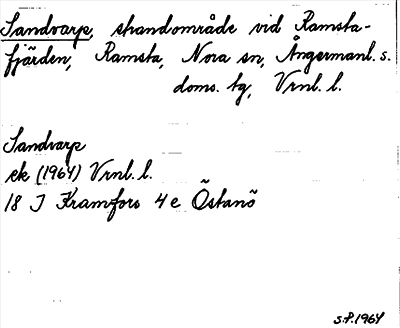 Sandvarp, strandområde vid Ramsta-
fjärden, Ramsta, Nora sn, Ångermanl. s.
doms. tg, Vrnl. l.
Sandvarp
ek (1964) Vrnl. l.
18 J Kramfors 4 e Östanö
S.P. 1964